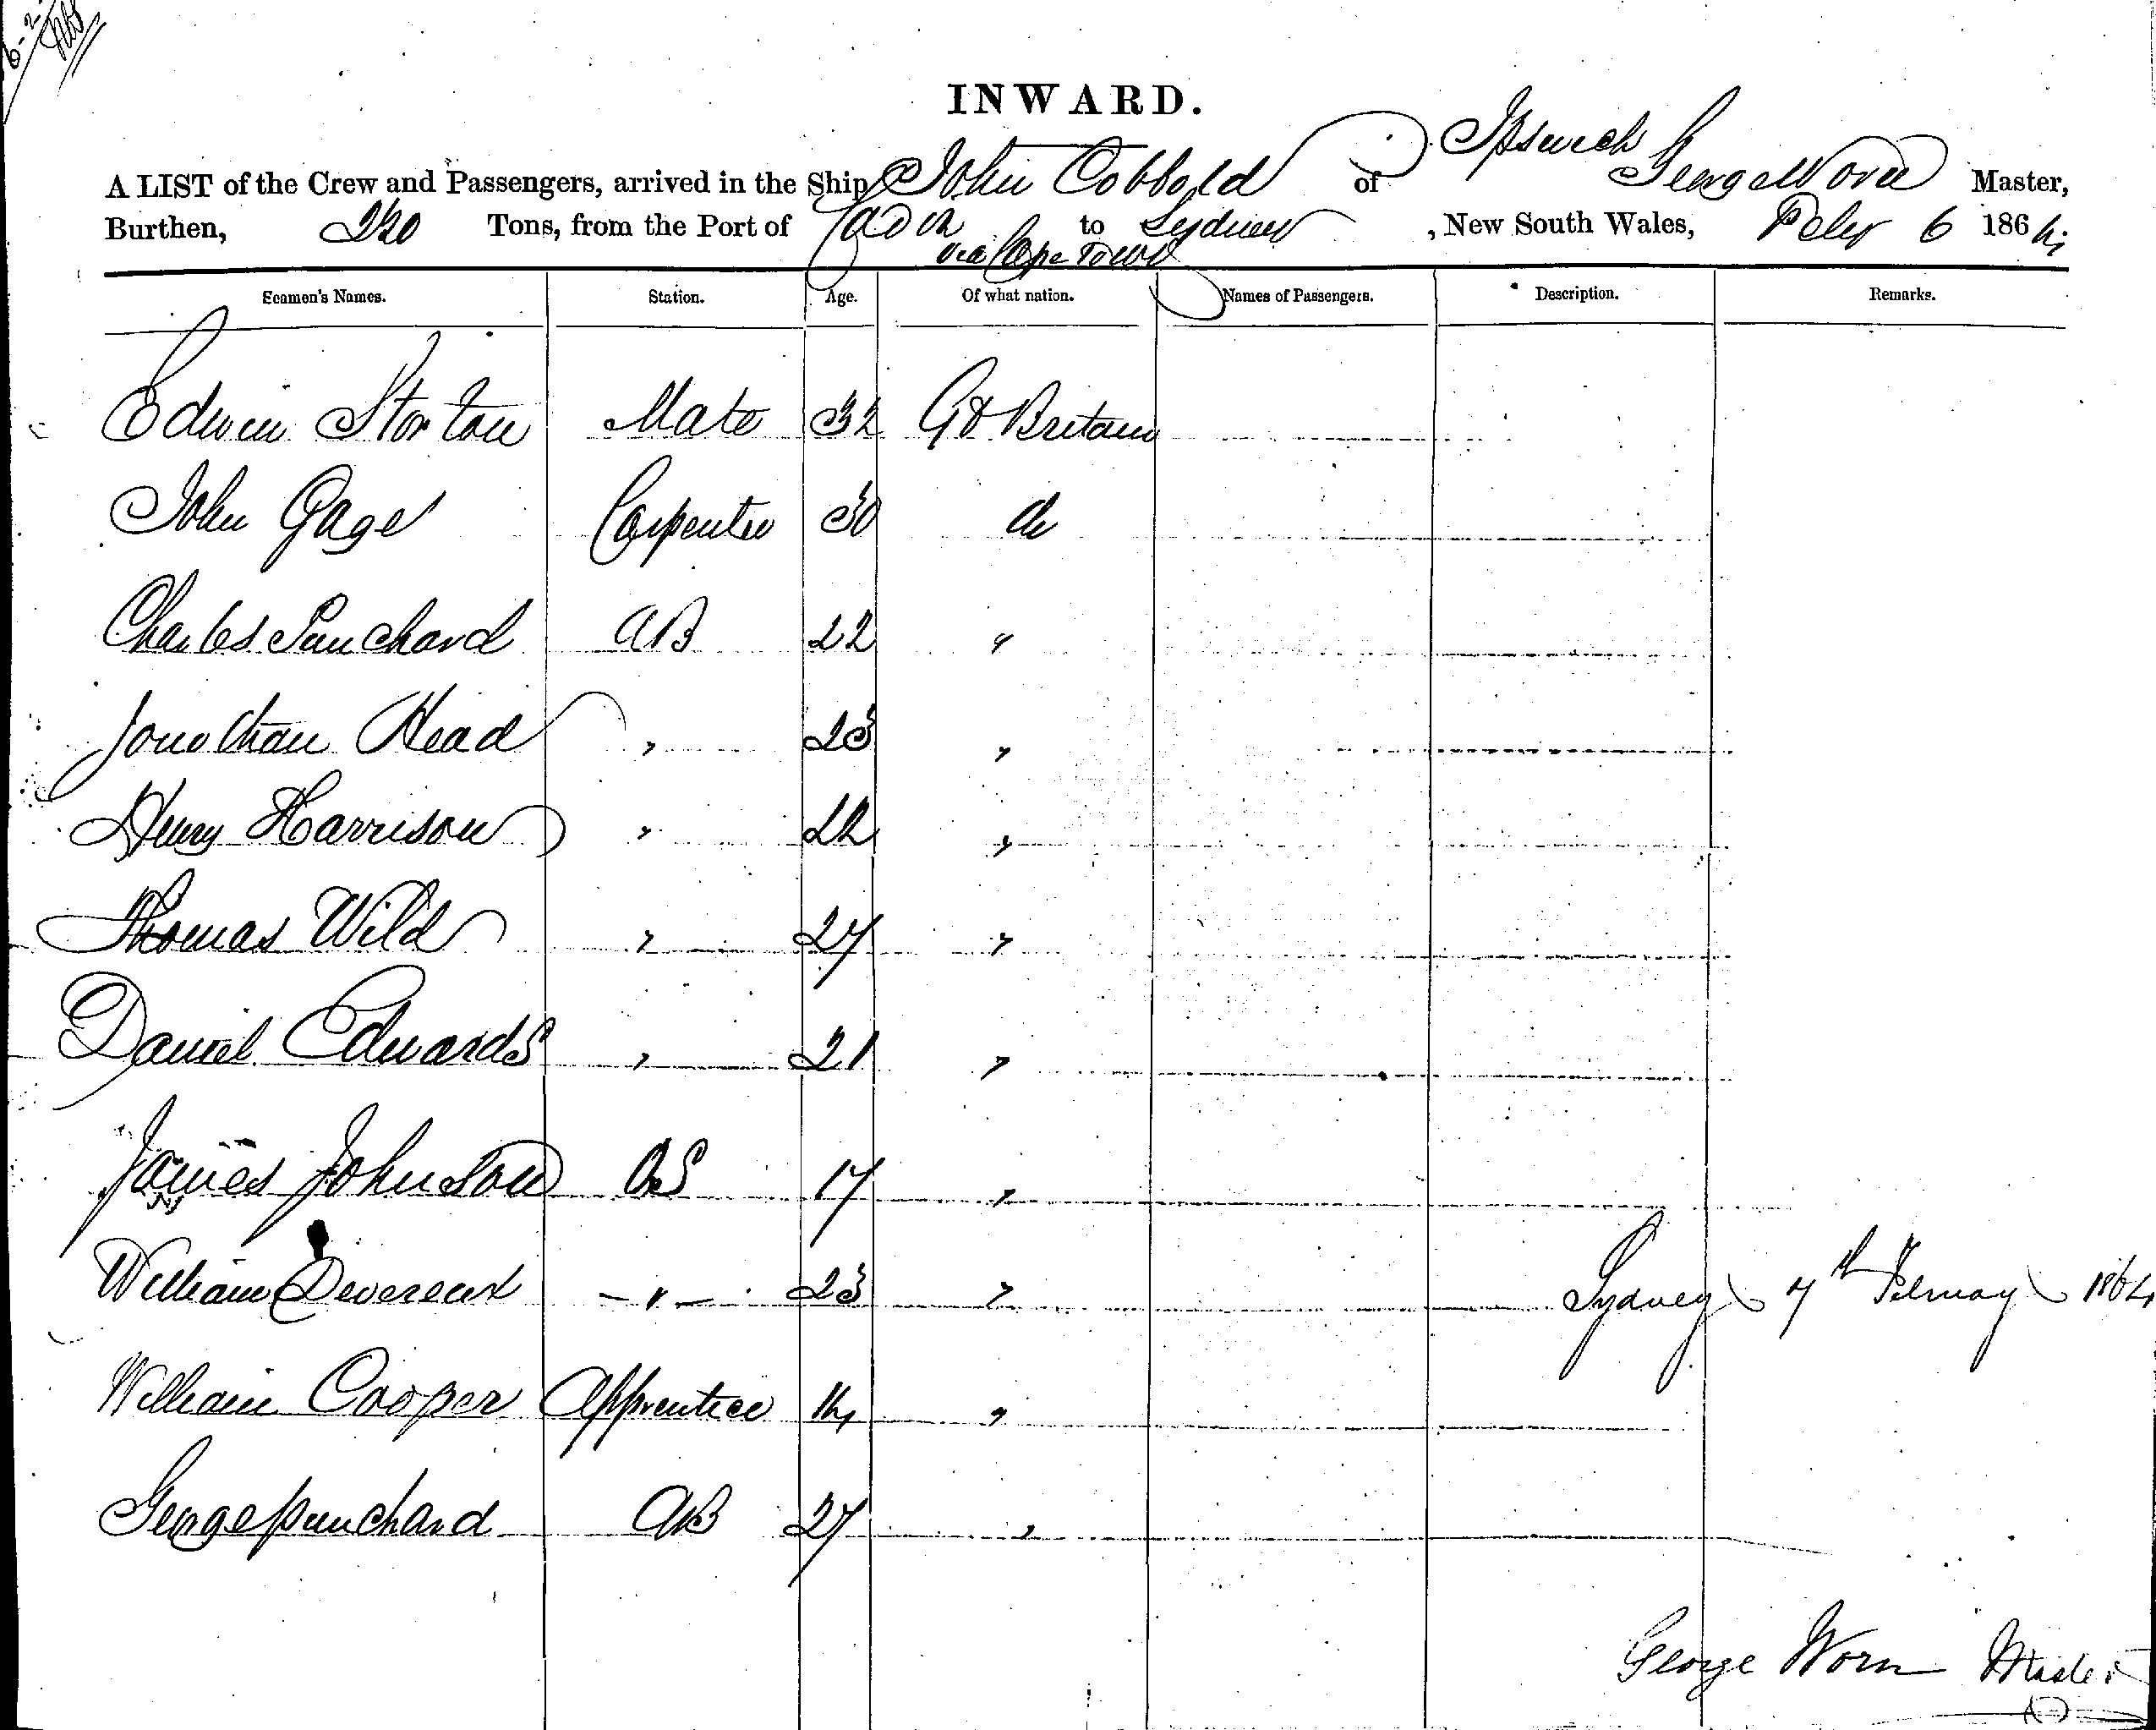 6-2-
INWARD.
A LIST of the Crew and Passengers, arrived in the Ship John Cobbold of Ipswich George Worn Master,
Burthen, 240 Tons, from the Port of Cadiz to Sydney, New South Wales, Feby 6 1864
via Cape Town
Seamen's Names. Station. Age. Of what nation. Names of Passengers. Description. Remarks.
Edwin Storton Mate 32 Gt Britain
John Gage Carpenter 30 do
Charles Punchard AB 22 "
Jonathan Head " 23 "
Henry Harrison " 22 "
Thomas Wild " 27 "
Daniel Edwards " 21 "
James Johnson OS 17 "
William Devereux - " - 23 " Sydney 7th February 1864
William Cooper Apprentice 14 "
George punchard AB 27 "
George Worn Master